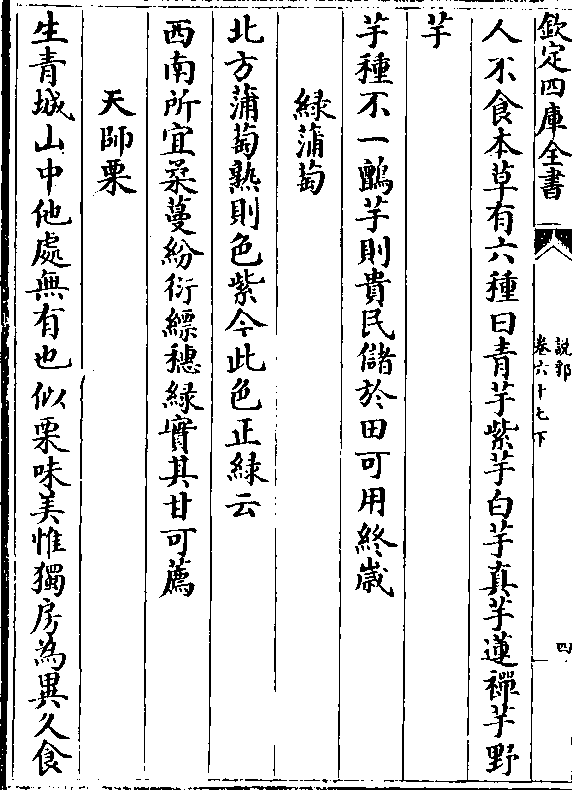 欽定四庫全書
説郛
卷六十七下
四
人不食本草有六種曰青芋紫芋白芋真芋蓮禪芋野
芋
芋種不一鷭芋則貴民儲於田可用終歳
緑蒲萄
北方蒲萄熟則色紫今此色正緑云
西南所宜柔蔓紛衍縹穗緑實其甘可薦
天師栗
生青城山中他處無有也似栗味美惟獨房為異久食